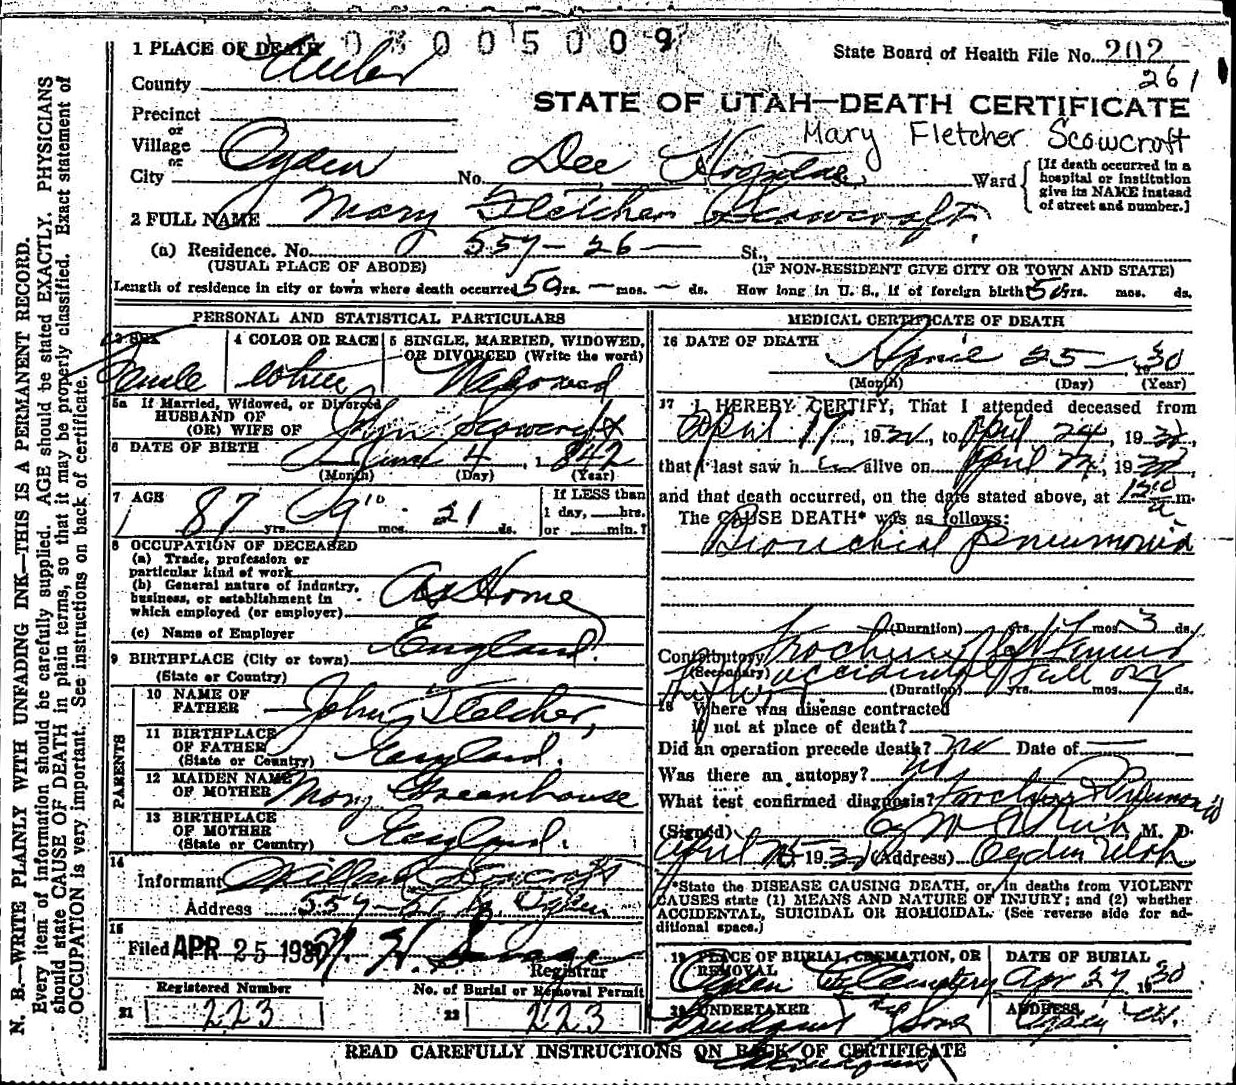 0 3 0 0 5 0 0 9
1 PLACE OF DEATH
State Board of Health File No. 202
261
County Weber
STATE OF UTAH—DEATH CERTIFICATE
Precinct
or
Village
or
Mary Fletcher Scowcroft
City Ogden No. Dee Hospital Ward
[If death occurred in a hospital or institution give its NAME instead of street and number.]
2 FULL NAME Mary Fletcher Scowcroft
(a) Residence. No. 557-26- St.,
(USUAL PLACE OF ABODE) (IF NON-RESIDENT GIVE CITY OR TOWN AND STATE)
Length of residence in city or town where death occurred 50 yrs. — mos. — ds. How long in U. S., if of foreign birth 50 yrs. mos. ds.
PERSONAL AND STATISTICAL PARTICULARS
3 SEX
Female
4 COLOR OR RACE
White
5 SINGLE, MARRIED, WIDOWED, OR DIVORCED (Write the word)
Widowed
5a If Married, Widowed, or Divorced
HUSBAND OF
(OR) WIFE OF John Scowcroft
6 DATE OF BIRTH
June 4, 1842
(Month) (Day) (Year)
7 AGE
87 yrs. 10 mos. 21 ds.
If LESS than
1 day, hrs.
or min.?
8 OCCUPATION OF DECEASED
(a) Trade, profession or
particular kind of work
(b) General nature of industry,
business, or establishment in
which employed (or employer) At Home
(c) Name of Employer
9 BIRTHPLACE (City or town) England
(State or Country)
PARENTS
10 NAME OF
FATHER John Fletcher,
11 BIRTHPLACE
OF FATHER England.
(State or Country)
12 MAIDEN NAME
OF MOTHER Mary Greenhouse
13 BIRTHPLACE
OF MOTHER England.
(State or Country)
14
Informant Willard Scowcroft
Address 557- Ogden
15
Filed APR 25 1930
Registrar
Registered Number
21 223
No. of Burial or Removal Permit
22 223
MEDICAL CERTIFICATE OF DEATH
16 DATE OF DEATH
April 25 - 1930
(Month) (Day) (Year)
17 I HEREBY CERTIFY, That I attended deceased from
April 17, 1930, to April 24, 1930,
that I last saw her alive on April 24, 1930
and that death occurred, on the date stated above, at m.
The CAUSE DEATH* was as follows:
Bronchial Pneumonia
(Duration) yrs. mos. 3 ds.
Contributory Fracture Rt Femur
(Secondary) accidental fall
(Duration) yrs. mos. ds.
18 Where was disease contracted
if not at place of death?
Did an operation precede death? no Date of —
Was there an autopsy? no
What test confirmed diagnosis? Pneumonia
(Signed) M. D.
April 25 1930 (Address) Ogden Utah
*State the DISEASE CAUSING DEATH, or, in deaths from VIOLENT
CAUSES state (1) MEANS AND NATURE OF INJURY; and (2) whether
ACCIDENTAL, SUICIDAL OR HOMICIDAL. (See reverse side for ad-
ditional space.)
19 PLACE OF BURIAL, CREMATION, OR
REMOVAL
Ogden Cemetery
DATE OF BURIAL
Apr 27 1930
20 UNDERTAKER
& Sons
ADDRESS
Ogden Ut.
READ CAREFULLY INSTRUCTIONS ON BACK OF CERTIFICATE
N. B.—WRITE PLAINLY WITH UNFADING INK—THIS IS A PERMANENT RECORD.
Every item of information should be carefully supplied. AGE should be stated EXACTLY. PHYSICIANS
should state CAUSE OF DEATH in plain terms, so that it may be properly classified. Exact statement of
OCCUPATION is very important. See instructions on back of certificate.